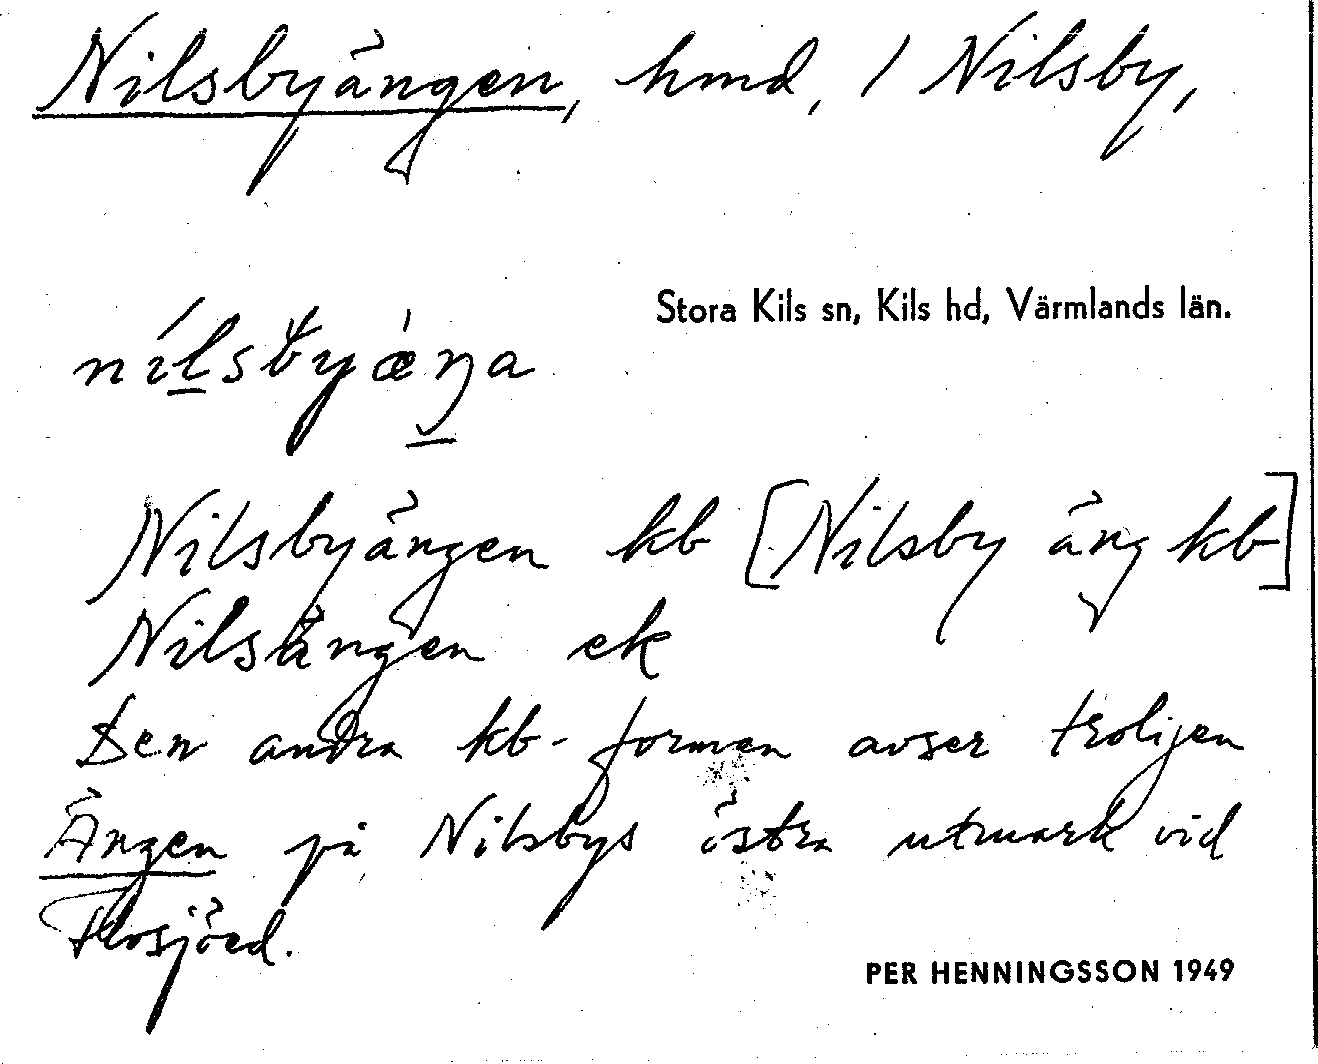 Nilsbyängen, hmd, / Nilsby,
Stora Kils sn, Kils hd, Värmlands län.
nílsbyǽŋa
Nilsbyängen kb [Nilsby äng kb]
Nilsängen ek
Den andra kb-formen avser troligen
Ängen på Nilsbys östra utmark vid
PER HENNINGSSON 1949